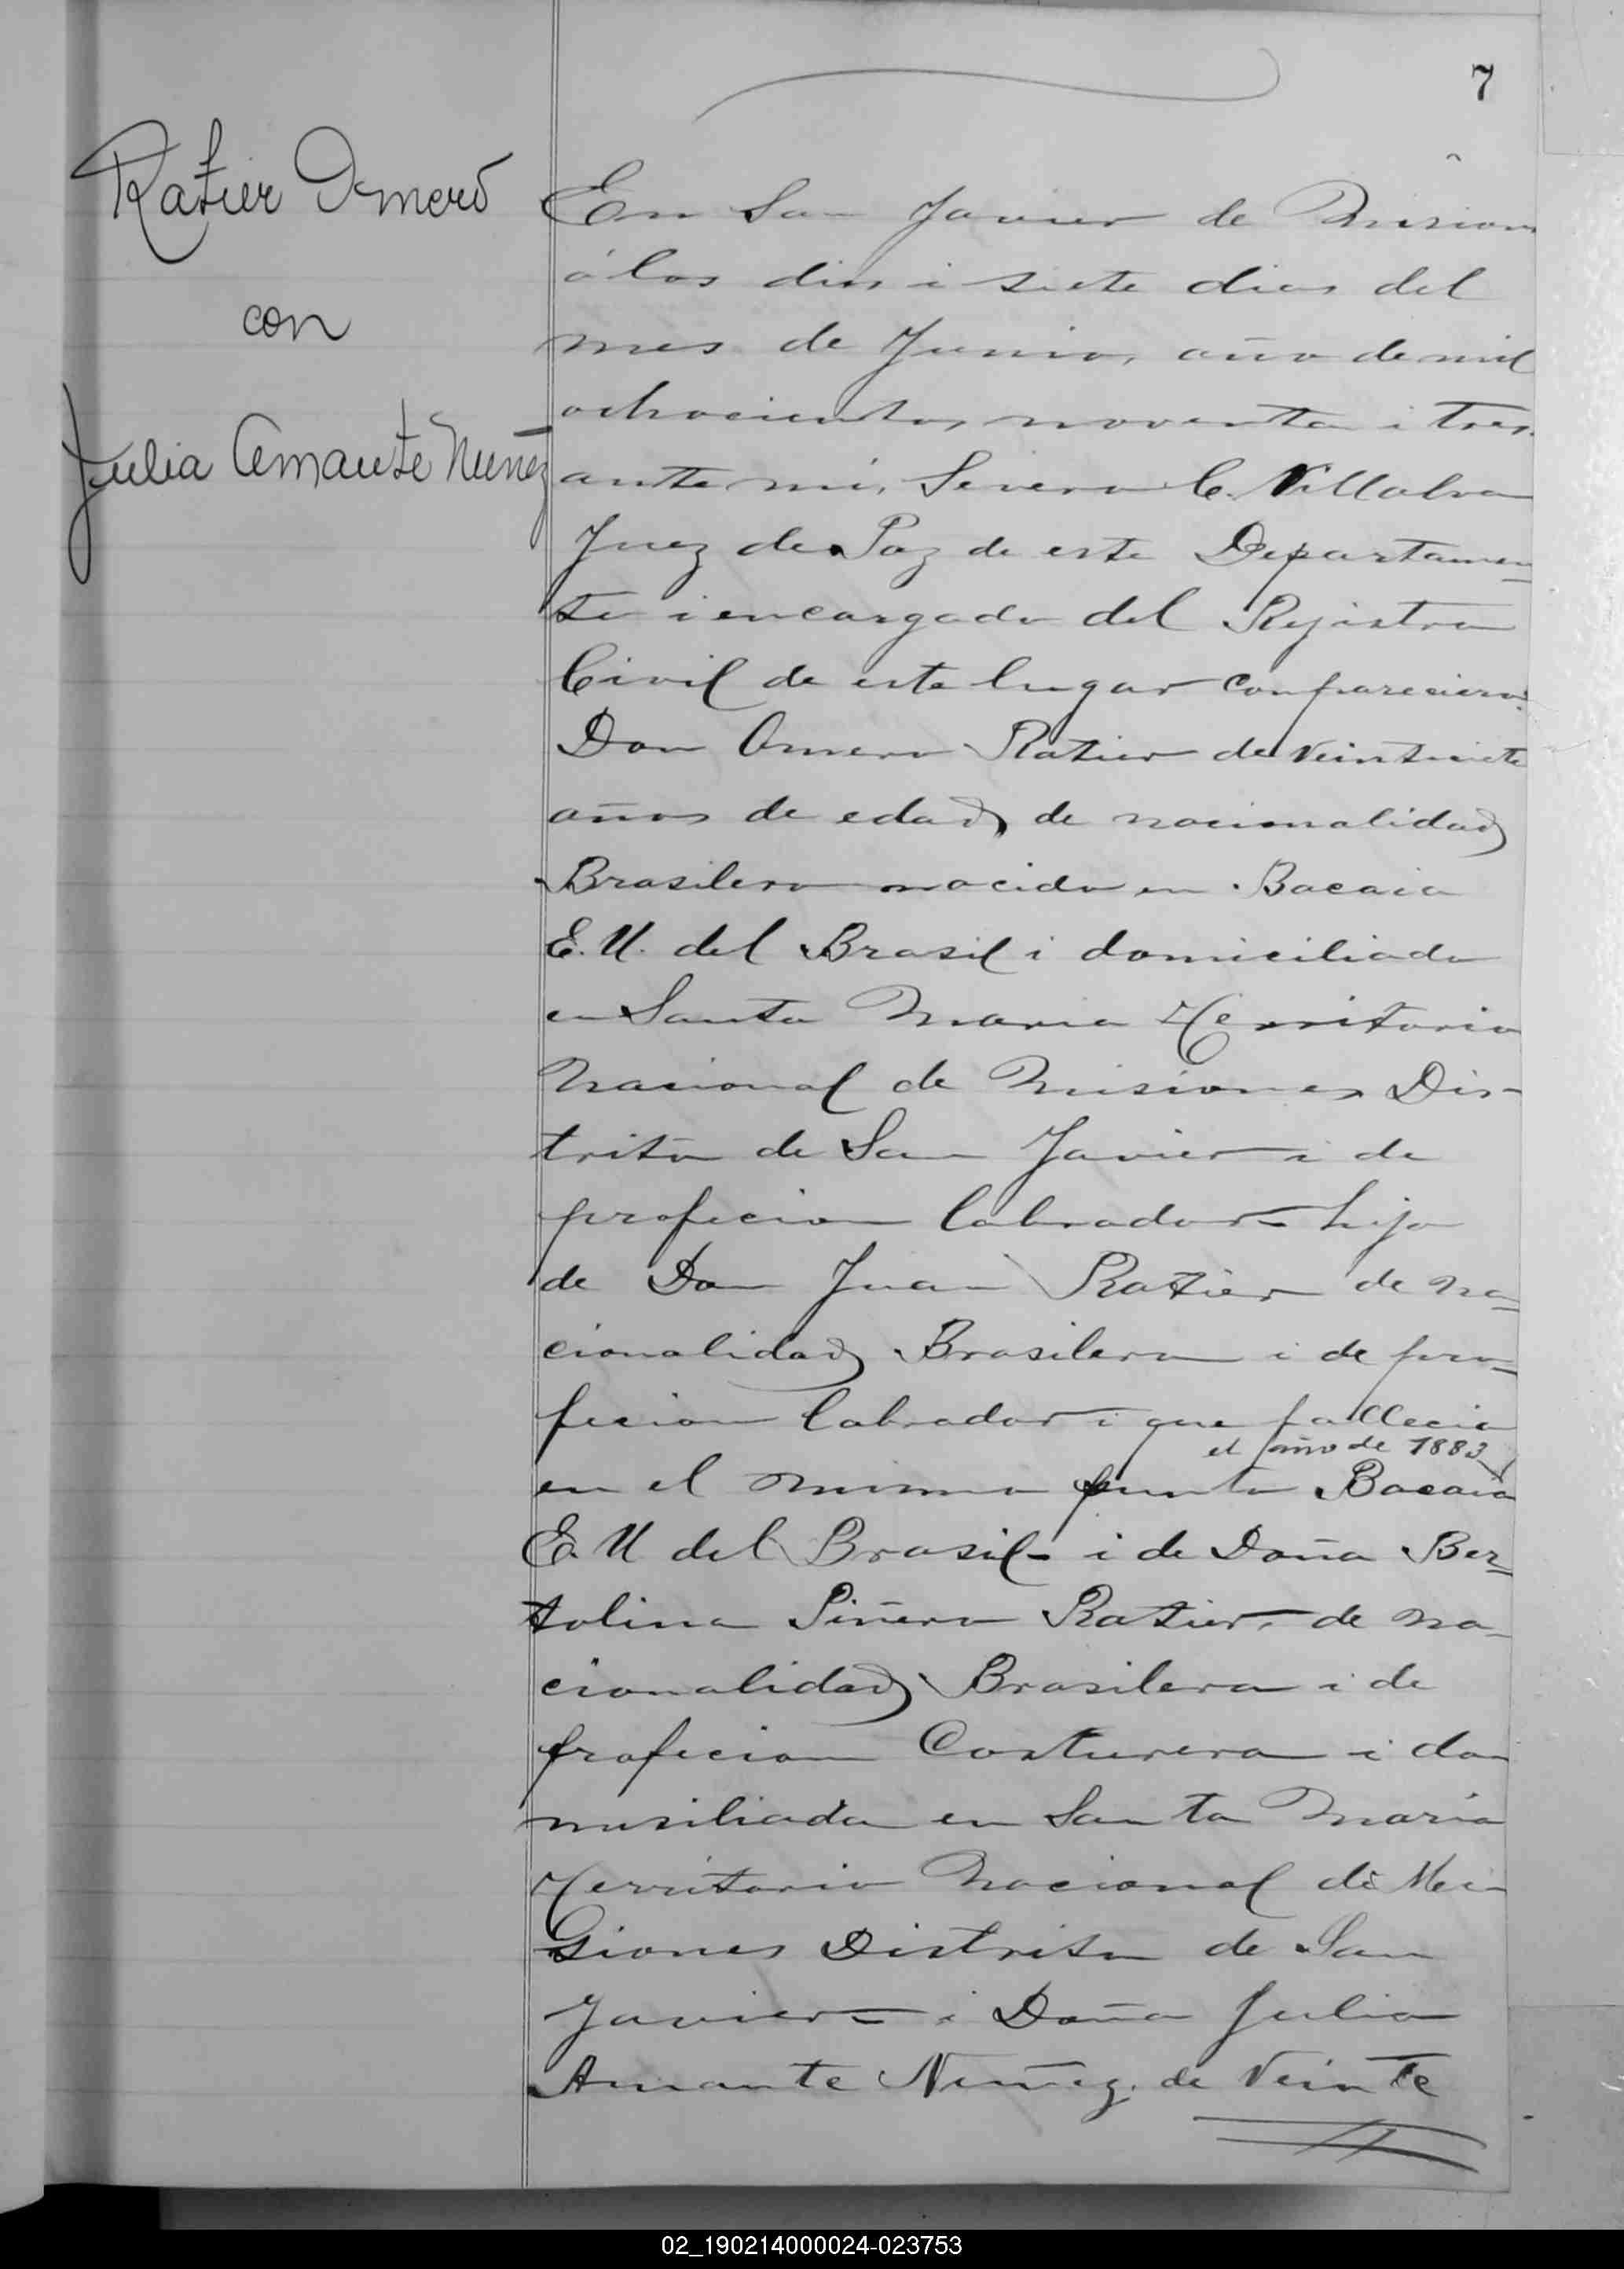 7
Ratier Omero
con
Julia Amante Nuñez
En San Javier de Misiones
á los dies i siete dias del
mes de Junio, año de mil
ochocientos noventa i tres.
ante mi, Severo C. Villalva
Juez de Paz de este Departamen=
to i encargado del Rejistro
Civil de este lugar comparecieron:
Don Omero Ratier de veintisiete
años de edad, de nacionalidad
Brasilero nacido en Bacaia
E. U. del Brasil i domiciliado
en Santa Maria Territorio
Nacional de Misiones Dis-
trito de San Javier i de
profecion labrador- hijo
de Don Juan Ratier de na=
cionalidad Brasilera i de pro=
fecion labrador i que fallecio
el año de 1883
en el mismo punto Bacaia
E. U del Brasil- i de Doña Ber=
tolina Piñero Ratier, de na-
cionalidad Brasilera i de
profecion Costurera i do
musiliada en Santa Maria
Territorio Nacional de Mi
siones Distrito de San
Javier- i Doña Julia
Amante Nuñez. de Veinte
02_190214000024-023753